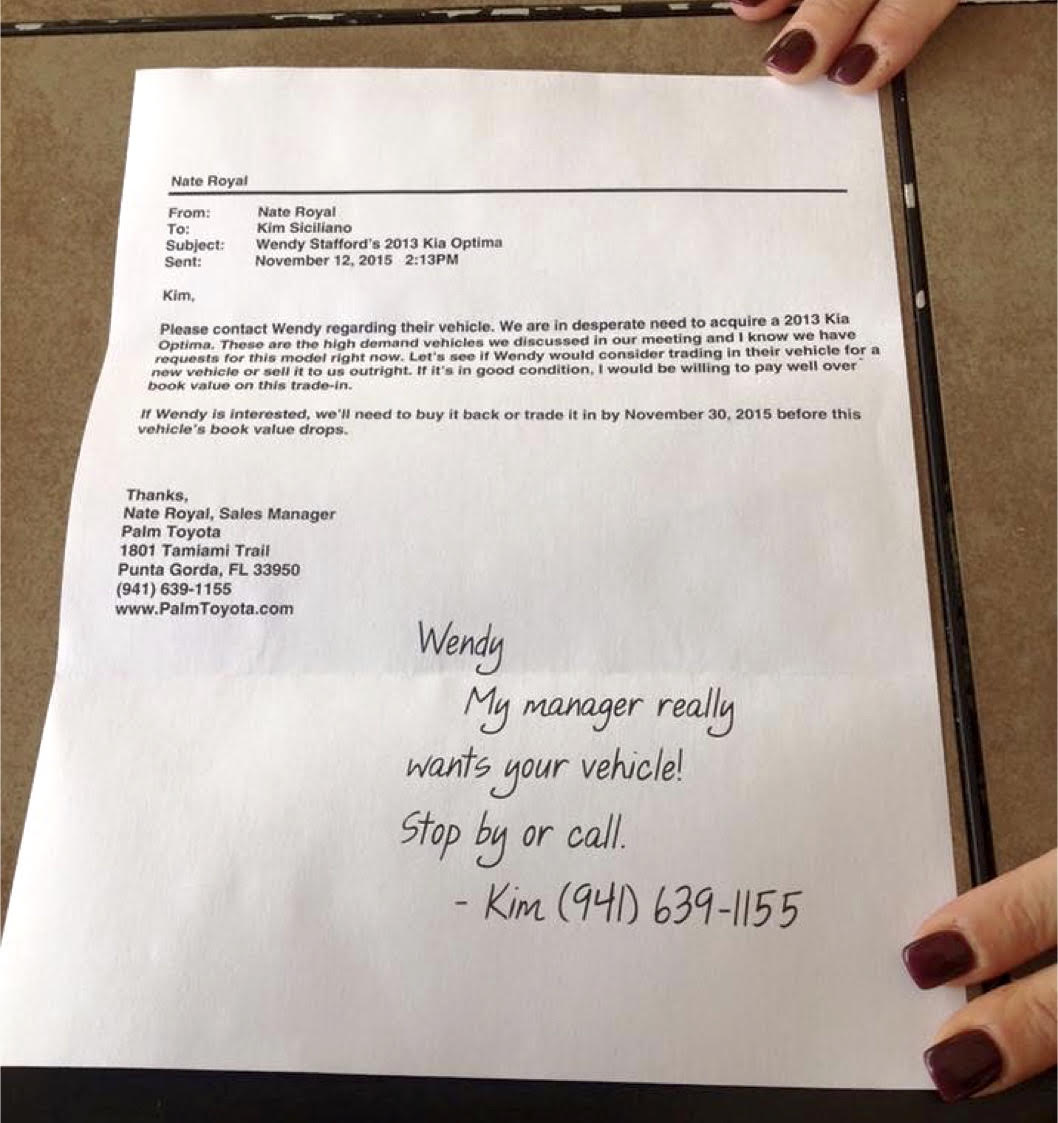 Nate Royal
From: Nate Royal
To: Kim Siciliano
Subject: Wendy Stafford's 2013 Kia Optima
Sent: November 12, 2015 2:13PM
Kim,
Please contact Wendy regarding their vehicle. We are in desperate need to acquire a 2013 Kia
Optima. These are the high demand vehicles we discussed in our meeting and I know we have
requests for this model right now. Let's see if Wendy would consider trading in their vehicle for a
new vehicle or sell it to us outright. If it's in good condition, I would be willing to pay well over
book value on this trade-in.
If Wendy is interested, we'll need to buy it back or trade it in by November 30, 2015 before this
vehicle's book value drops.
Thanks,
Nate Royal, Sales Manager
Palm Toyota
1801 Tamiami Trail
Punta Gorda, FL 33950
(941) 639-1155
www.PalmToyota.com
Wendy
My manager really
wants your vehicle!
Stop by or call.
- Kim (941) 639-1155